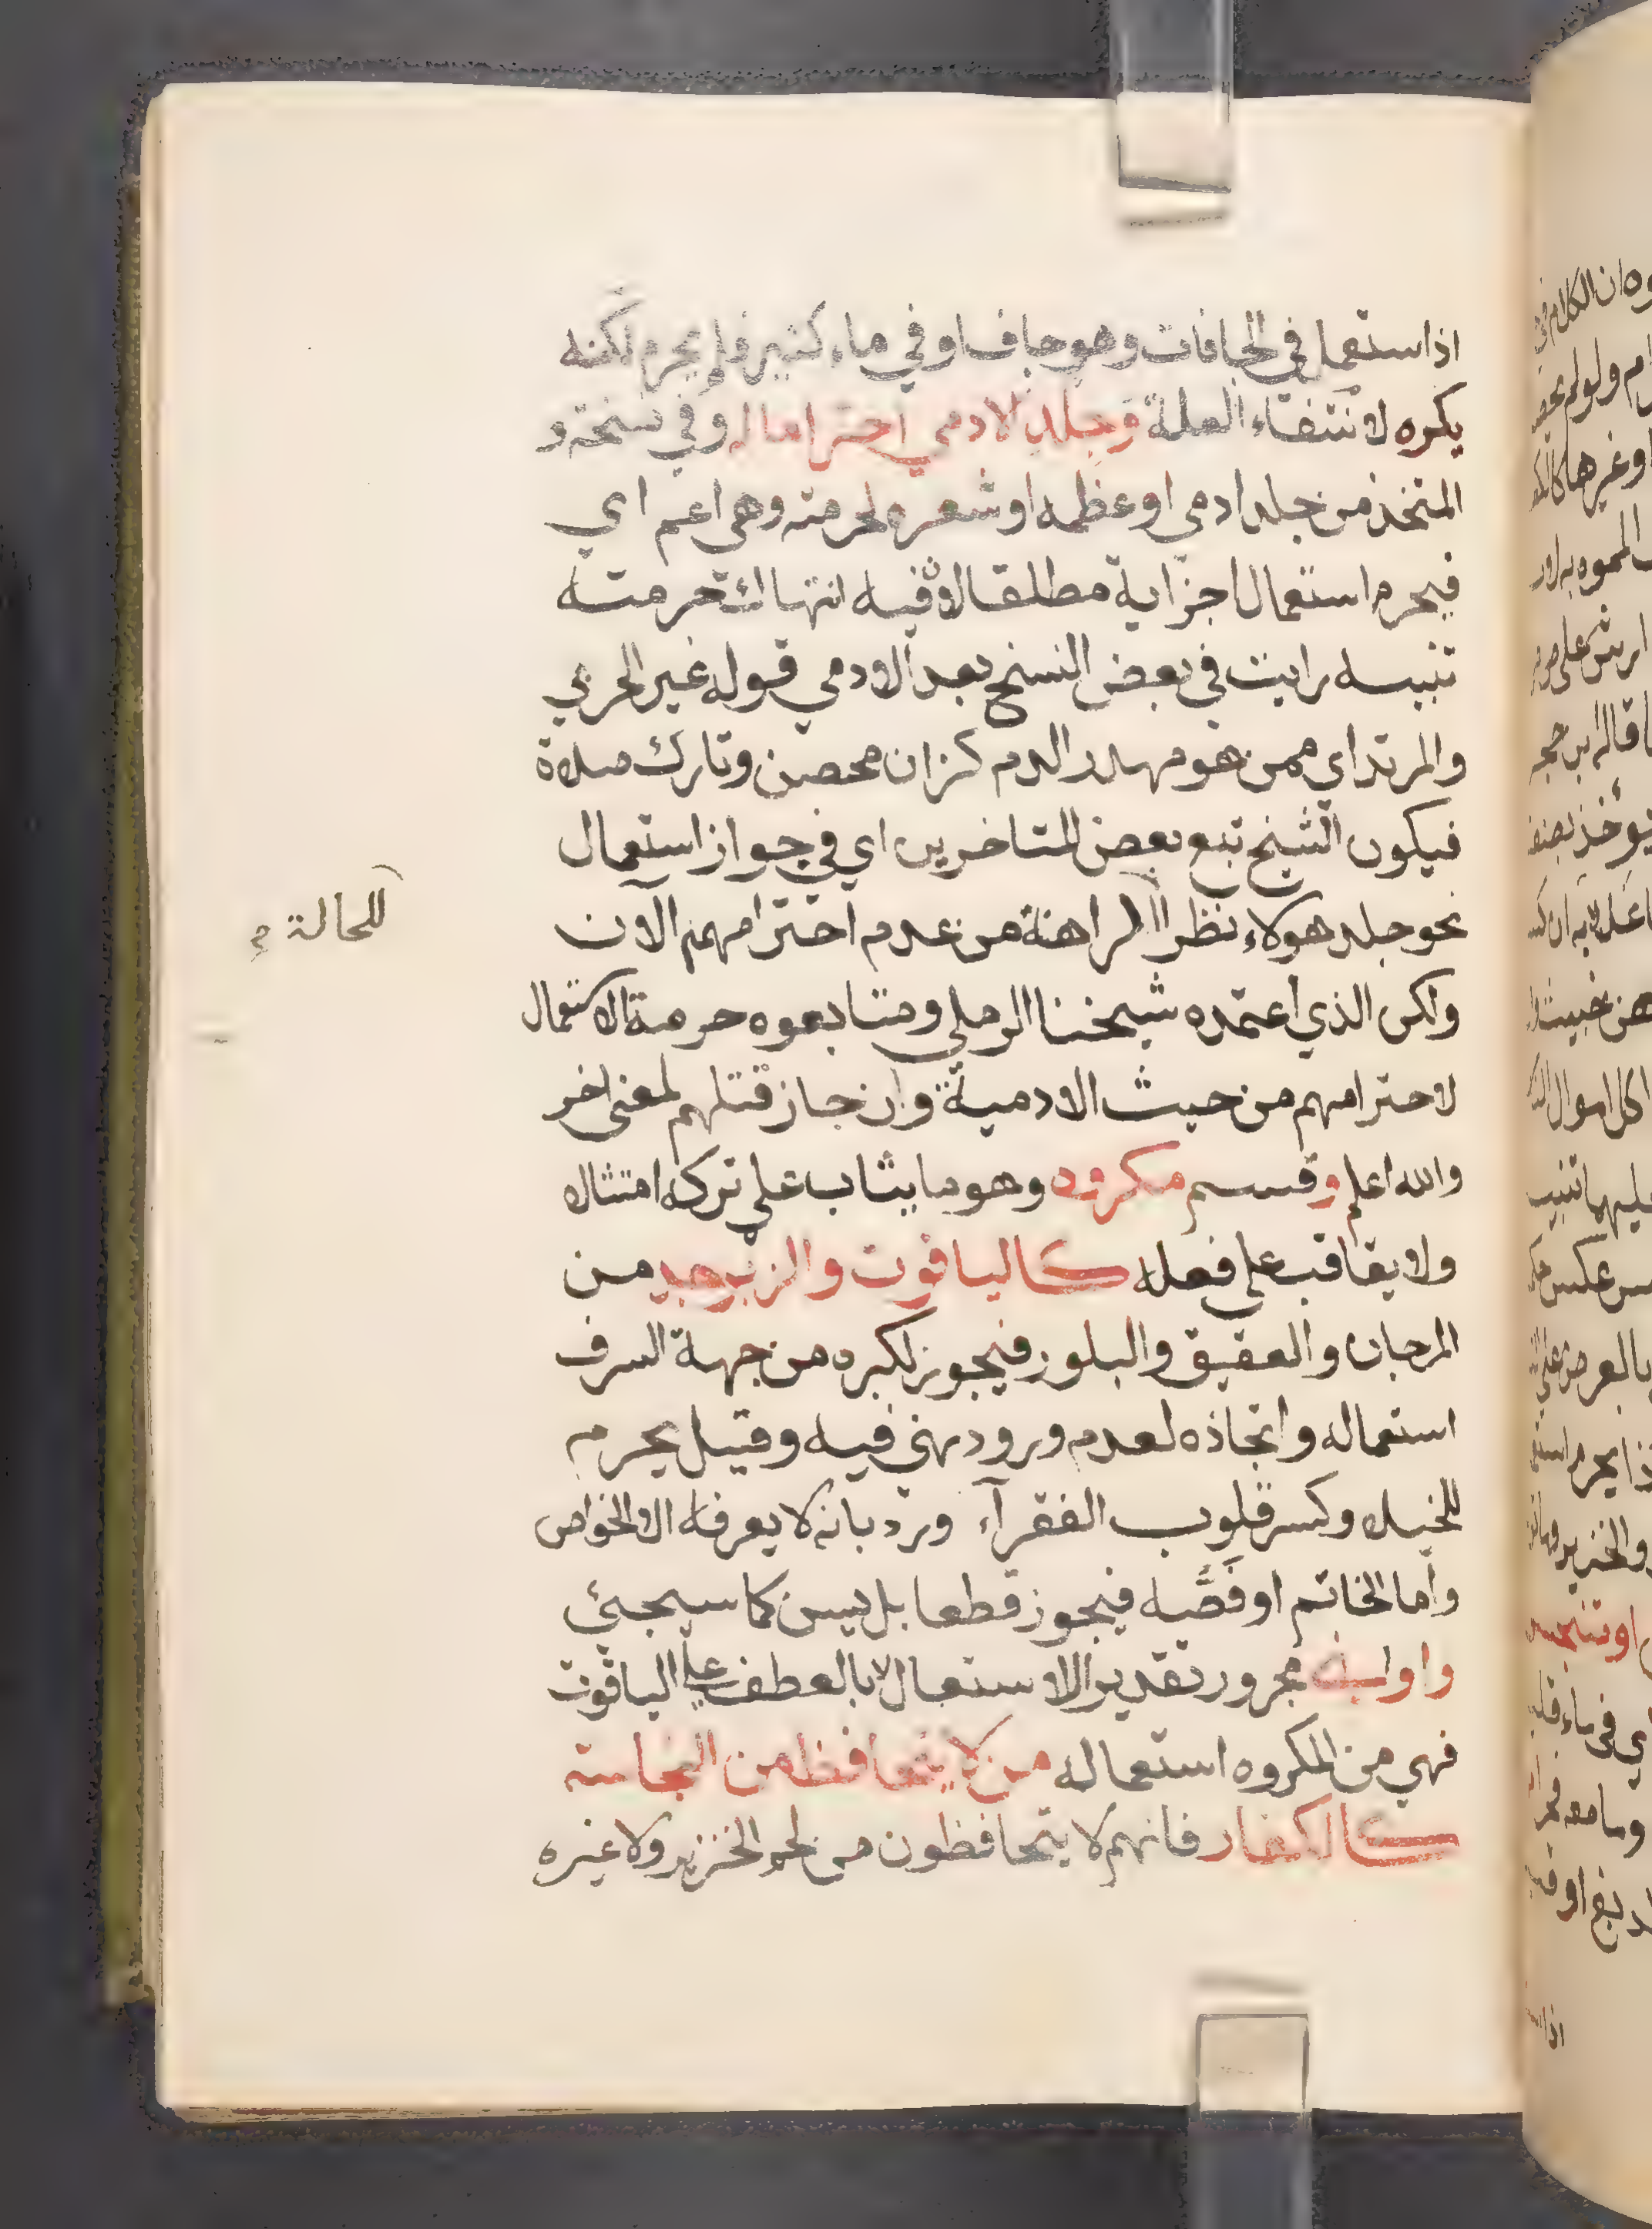 اذا استعمل في الجافات وهو جاف او في ماء كثير فلم يحرم لكنه
يكره لانتفاء العلة وجلد الادمي احتراما له وفي نسخة و
المتخذ من جلد ادمي او عظمه او شعره لحرمته وهي اعم اي
فيحرم استعمال اجزاية مطلقا لان فيه انتهاك حرمته
تنبيه رايت في بعض النسخ بعد الادمي قوله غير الحربي
والمرتد اي ممن هو مهدر الدم كزان محصن وتارك صلاة
فيكون الشيخ تبع بعض المتاخرين اي في جواز استعمال
نحو جلد هولاء نظرا الراهنة من عدم احترامهم الآن
للحالة
ولكن الذي اعتمده شيخنا الرملي ومتابعوه حرمة الاستعمال
لاحترامهم من حيث الادمية وان جاز قتلهم لمعنى اخر
والله اعلم وقسم مكروه وهو ما يثاب على تركه امتثالا
ولا يعاقب على فعله كالياقوت والزبرجد من
المرجان والعقيق والبلور فيجوز لكبره من جهة السرف
استعماله واتخاذه لعدم ورود نهي فيه وقيل يحرم
للخيلا وكسر قلوب الفقرآء ورد بانه لا يعرفه الا الخواص
واما الخاتم او فصه فيجوز قطعا بل يسن كما سيجئ
واواني مجرور بتقدير الاستعمال لا بالعطف على الياقوت
فهي من المكروه استعماله من لا يتحافظ من النجاسة
كالكفار فانهم لا يتحافظون من لحم الخنزير ولا غيره